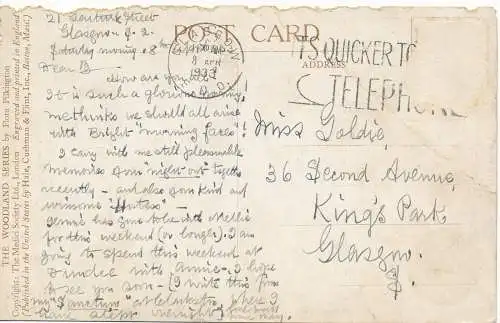 POST CARD
ADDRESS
GLASGOW
1933
IT'S QUICKER TO
TELEPHONE
THE WOODLAND SERIES by Flora Pilkington
Copyright. The Medici Society Ltd., London Engraved and printed in England
(Published in the United States by Hale, Cushman & Flint, Inc., Boston, Mass.)
21 Street
Glasgow
Saturday morning 8th
Dear
How are you
It is such a glorious morning,
methinks we should all arise
with "Bright morning faces"!
I carry with me still pleasurable
memories of our "night out" together
recently - and also your kind and
winsome "
Jennie has gone to be with Nellie
for this weekend (or longer). I am
going to spend this weekend at
Dundee with Annie - I hope
to see you soon - (I write this from
my "Sanctum" at Clarkston, where I
have slept overnight
Miss Goldie,
36 Second Avenue,
King's Park,
Glasgow.